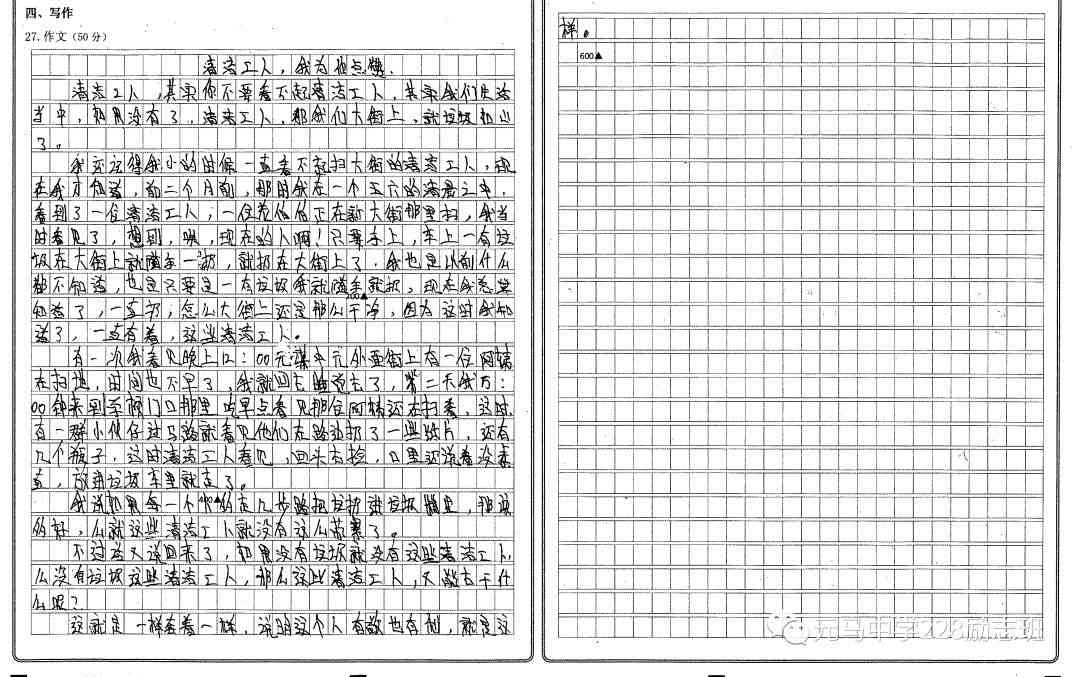 四、写作
27.作文（50分）
清洁工人，我为他点赞.
清洁工人，其实你不要看不起清洁工人，其实我们生活
当中，如果没有了，清洁工人，那我们大街上，就垃圾如山
了。
我还记得我小的时候一直看不起扫大街的清洁工人，现
在我才知道，前二个月前，那时我在一个五六的清晨之中，
看到了一位清洁工人；一位爷爷正在新大街那里扫，我当
时看见了，想到，哎，现在的人啊！只要手上，车上一有垃
圾在大街上就随手一扔，就扔在大街上了．我也是以前什么
都不知道，也是只要是一有垃圾我就随手就扔，现在我总算
200▲
知道了，一直扔；怎么大街上还是那么干净，因为这时我知
道了，一直有着，这些清洁工人。
有一次我看见晚上12：00元谋中元外面街上有一位阿姨
在扫地，时间也不早了，我就回去睡觉去了，第二天我7：
00钟来到学校门口那里吃早点看见那位阿姨还在扫着，这时
有一群小伙仔过马路就看见他们在路边扔了一些纸片，还有
几个瓶子，这时清洁工人看见，回头去捡，口里还说着没素
直，放到垃圾车里就走了。
400▲
我说如果每一个 的走几步路把垃圾 垃圾 里，那该
的好，么就这些清洁工人就没有这么苦累了。
不过话又说回来了，如果没有垃圾就没有这些清洁工人．
么没有垃圾这些清洁工人，那么这些清洁工人，又能去干什
么呢？
这就是一样 着一样，说明这个人有 也有利，就是这
样。
600▲
元马中学228励志班